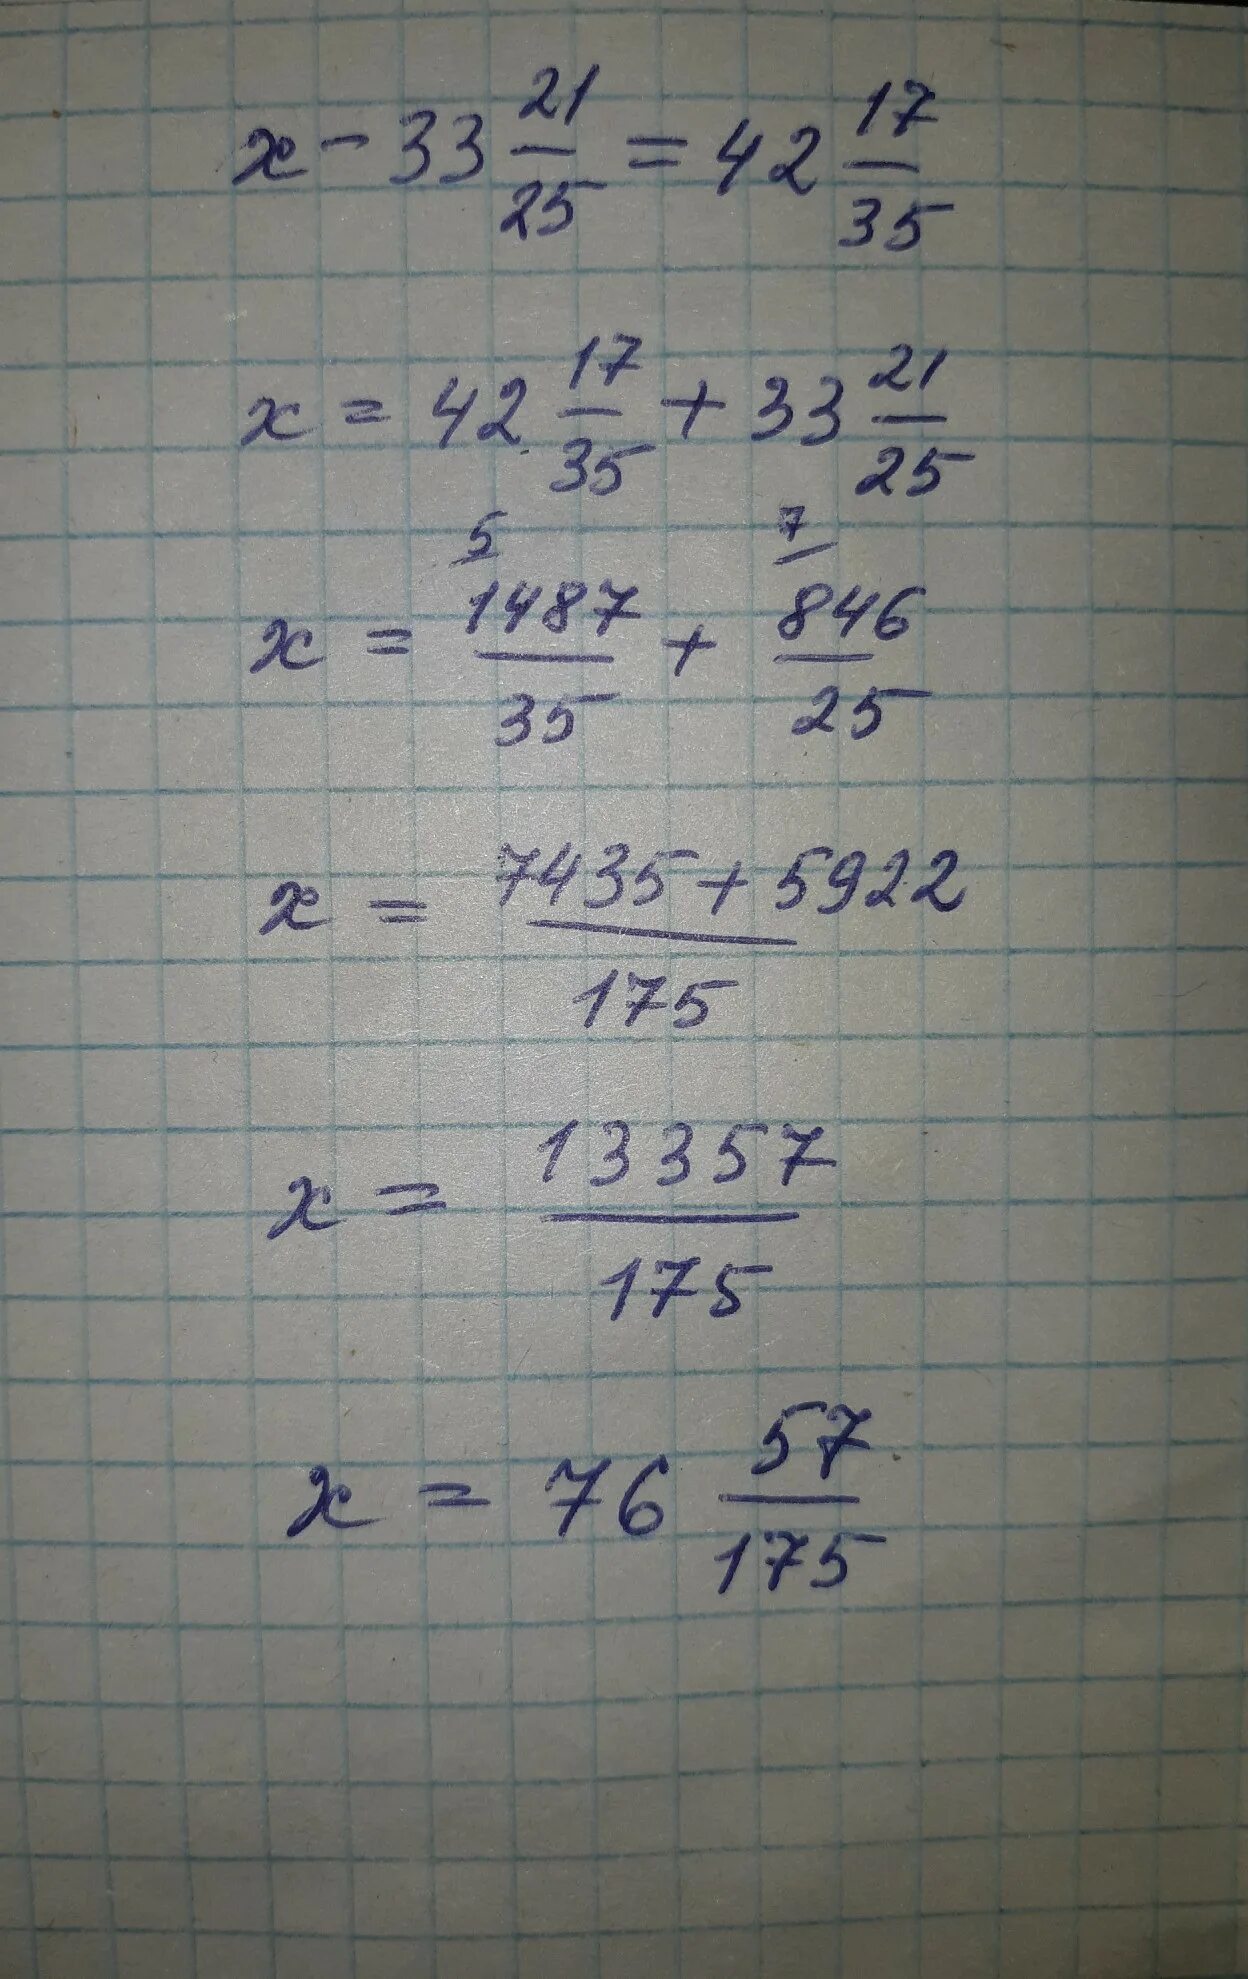 x - 33 21/25 = 42 17/35
x = 42 17/35 + 33 21/25
5 7
x = 1487/35 + 846/25
x = 7435 + 5922/175
x = 13357/175
x = 76 57/175